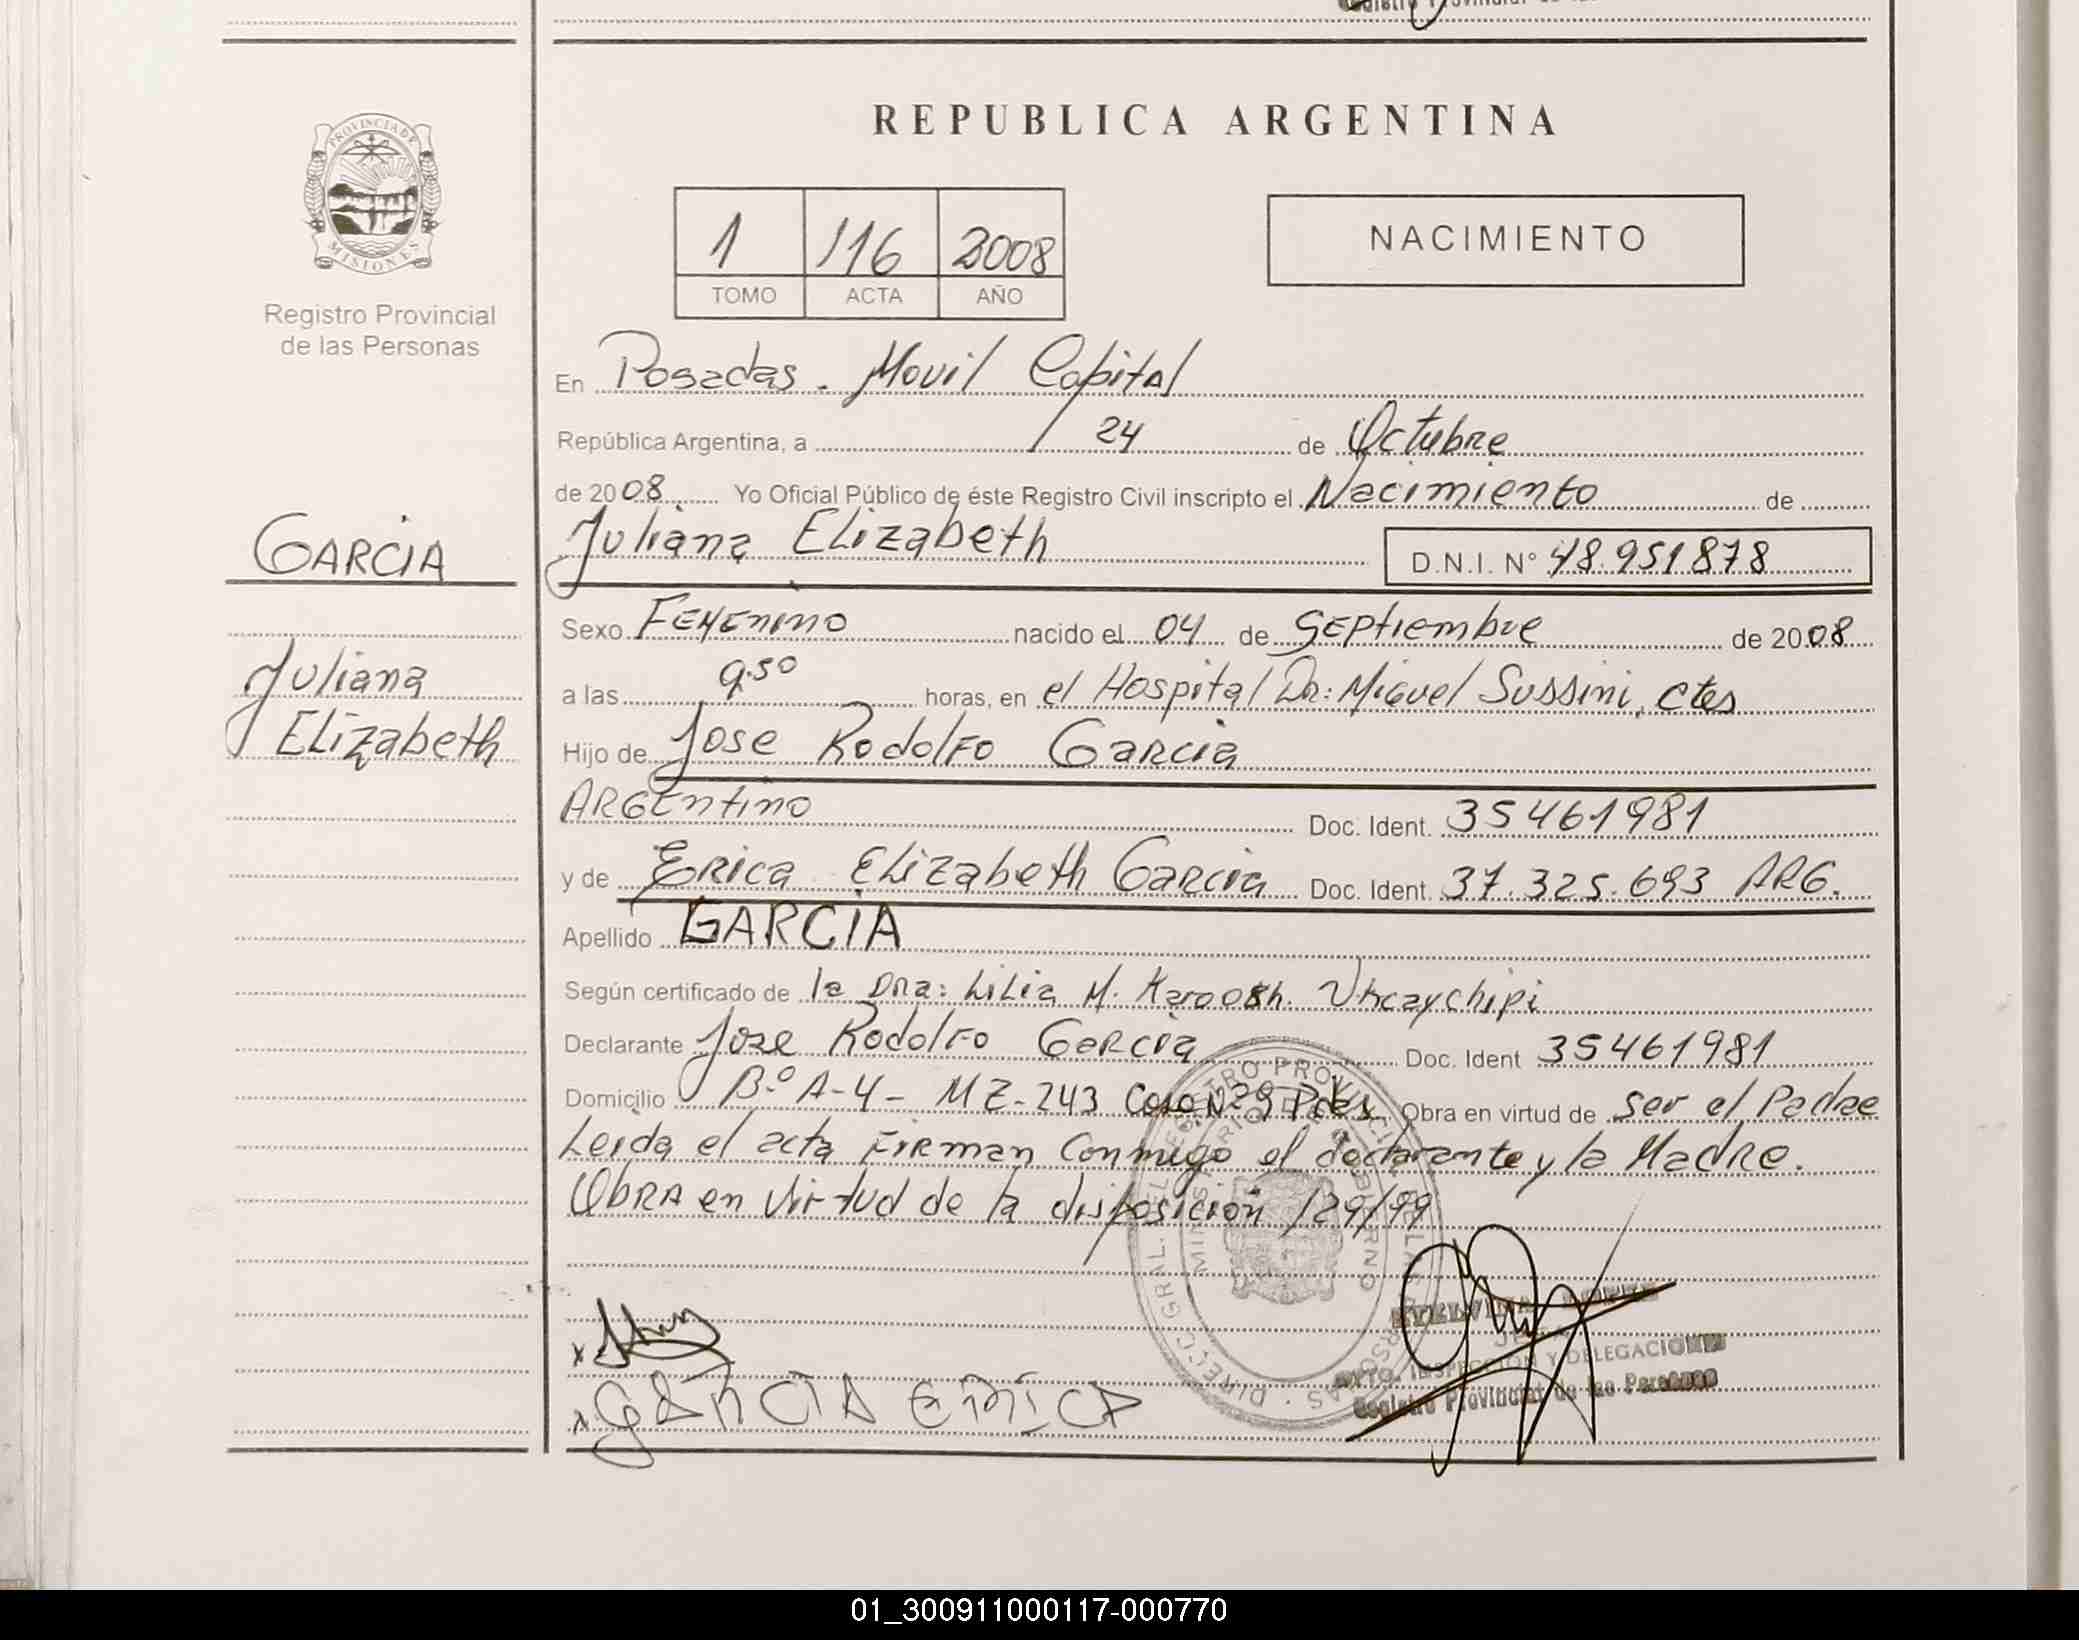 REPUBLICA ARGENTINA
PROVINCIA DE
MISIONES
Registro Provincial
de las Personas
1 116 2008
TOMO ACTA AÑO
NACIMIENTO
En Posadas. Movil Capital
República Argentina, a 24 de Octubre
de 2008 Yo Oficial Público de éste Registro Civil inscripto el Nacimiento de
GARCIA
Juliana Elizabeth D.N.I. Nº 48.951878
Sexo Femenino nacido el 04 de Septiembre de 2008
Juliana
Elizabeth
a las 9.50 horas, en el Hospital Dr: Miguel Sussini, Ctes
Hijo de Jose Rodolfo Garcia
Argentino Doc. Ident. 35461981
y de Erica Elizabeth Garcia Doc. Ident. 37.325.693 ARG.
Apellido GARCIA
Según certificado de la Dra: Lilia M.
Declarante Jose Rodolfo Garcia Doc. Ident 35461981
Domicilio Bº A-4- MZ-243 Casa Nº 29 Obra en virtud de ser el Padre
Leida el acta Firman Conmigo el declarante y la Madre.
Obra en virtud de la disposición 129/99
x
x GARCIA ERICA
JEFA
DPTO. INSPECCION Y DELEGACIONES
Registro Provincial de las Personas
01_300911000117-000770